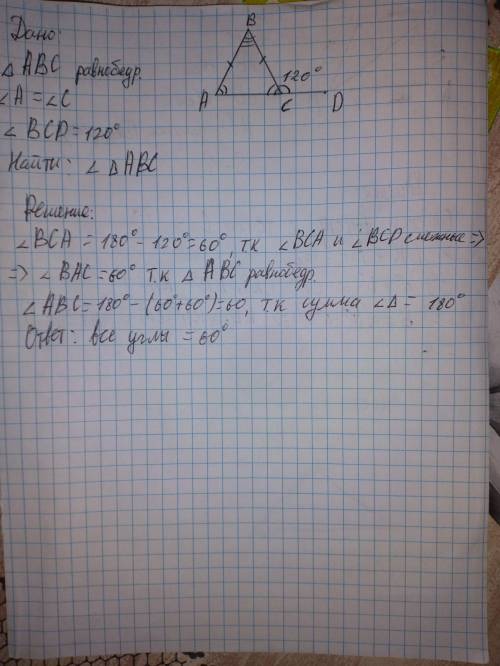 Дано:
△ ABC равнобедр.
∠A = ∠C
∠ BCD = 120°
Найти: ∠ △ ABC
B
120°
A
C
D
Решение:
∠BCA = 180° - 120° = 60°, т.к ∠BCA и ∠BCD смежные =>
=> ∠ BAC = 60° т.к △ ABC равнобедр.
∠ABC = 180° - (60°+60°) = 60, т.к сумма ∠△ = 180°
Ответ: все углы = 60°